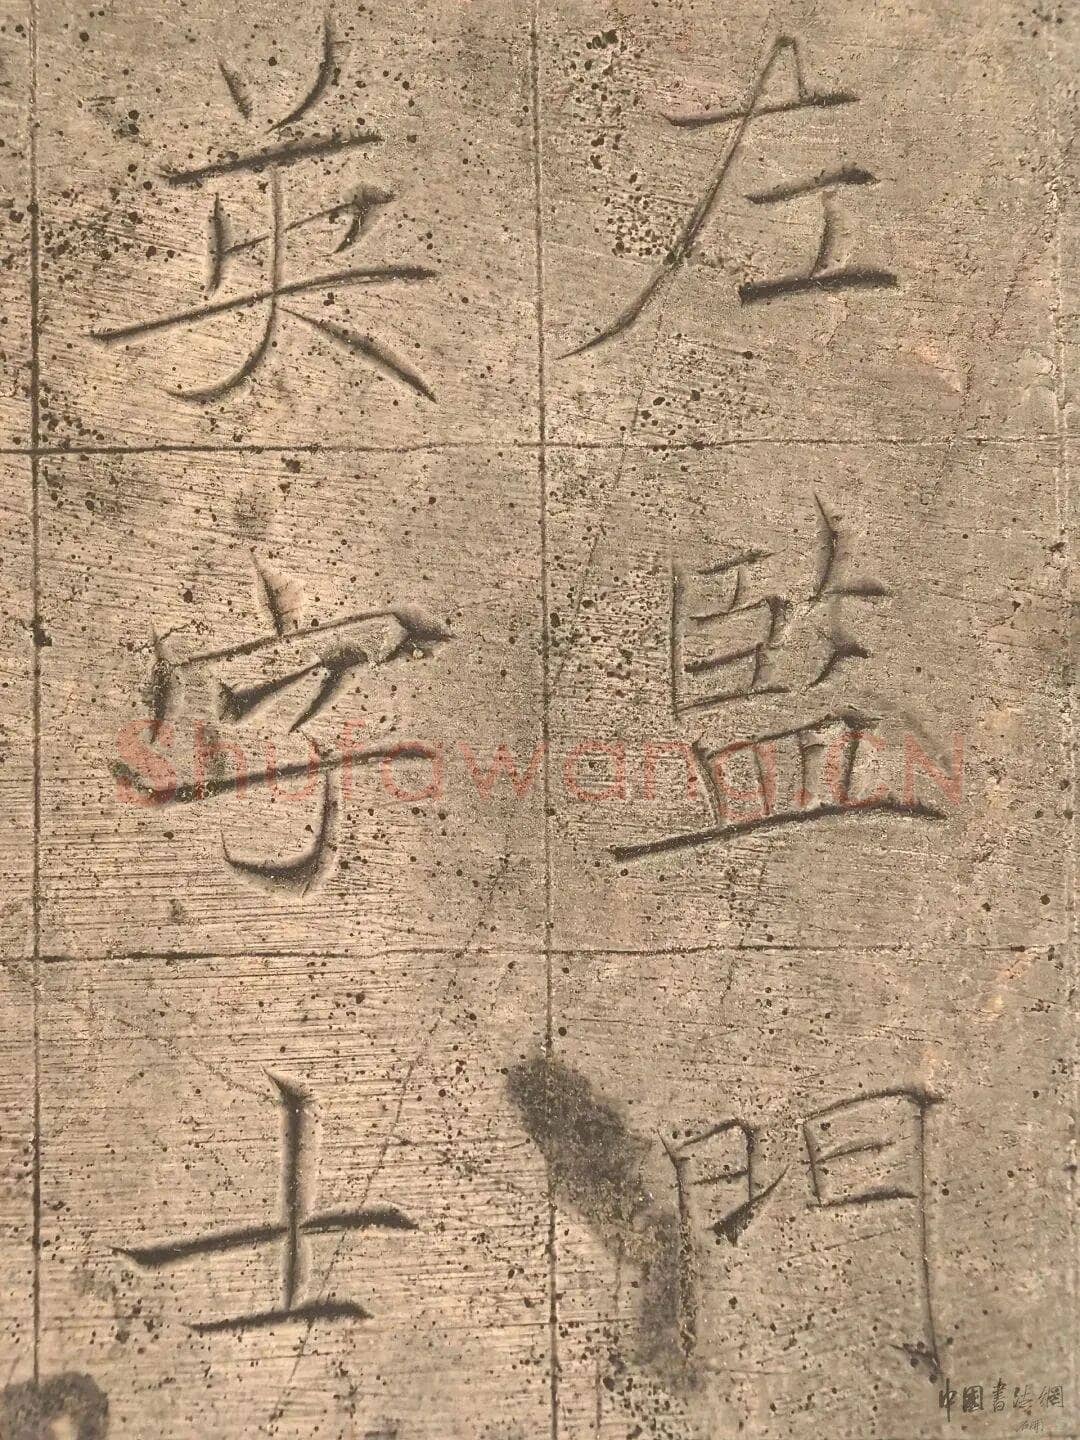 左監門
英字士
Shufawang.CN
中國書法網